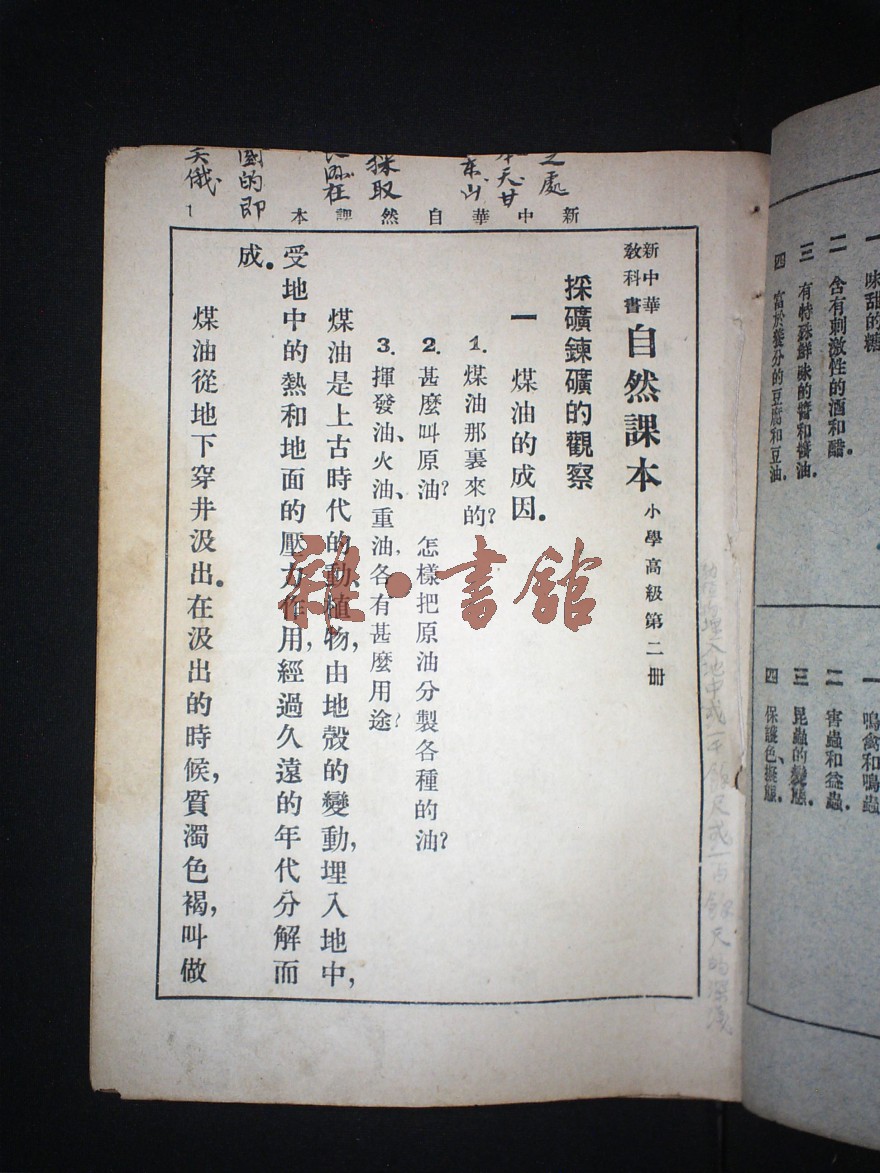 味甜的糖
二 含有刺激性的酒和醋。
三 有特殊鮮味的醬和醬油。
四 富於養分的豆腐和豆油。
一 鳴禽和鳴蟲
二 害蟲和益蟲。
三 昆蟲的變態。
四 保護色、擬態。
之處
天甘
東山
採取
國的即
美俄
新中華自然課本
1
新中華
教科書
自然課本 小學高級第二册
採礦鍊礦的觀察
一 煤油的成因。
1. 煤油那裏來的?
2. 甚麽叫原油? 怎樣把原油分製各種的油?
3. 揮發油、火油、重油,各有甚麽用途?
煤油是上古時代的動植物,由地殼的變動,埋入地中,
受地中的熱和地面的壓力作用,經過久遠的年代分解而
成。
煤油從地下穿井汲出。在汲出的時候,質濁色褐,叫做
雜·書館